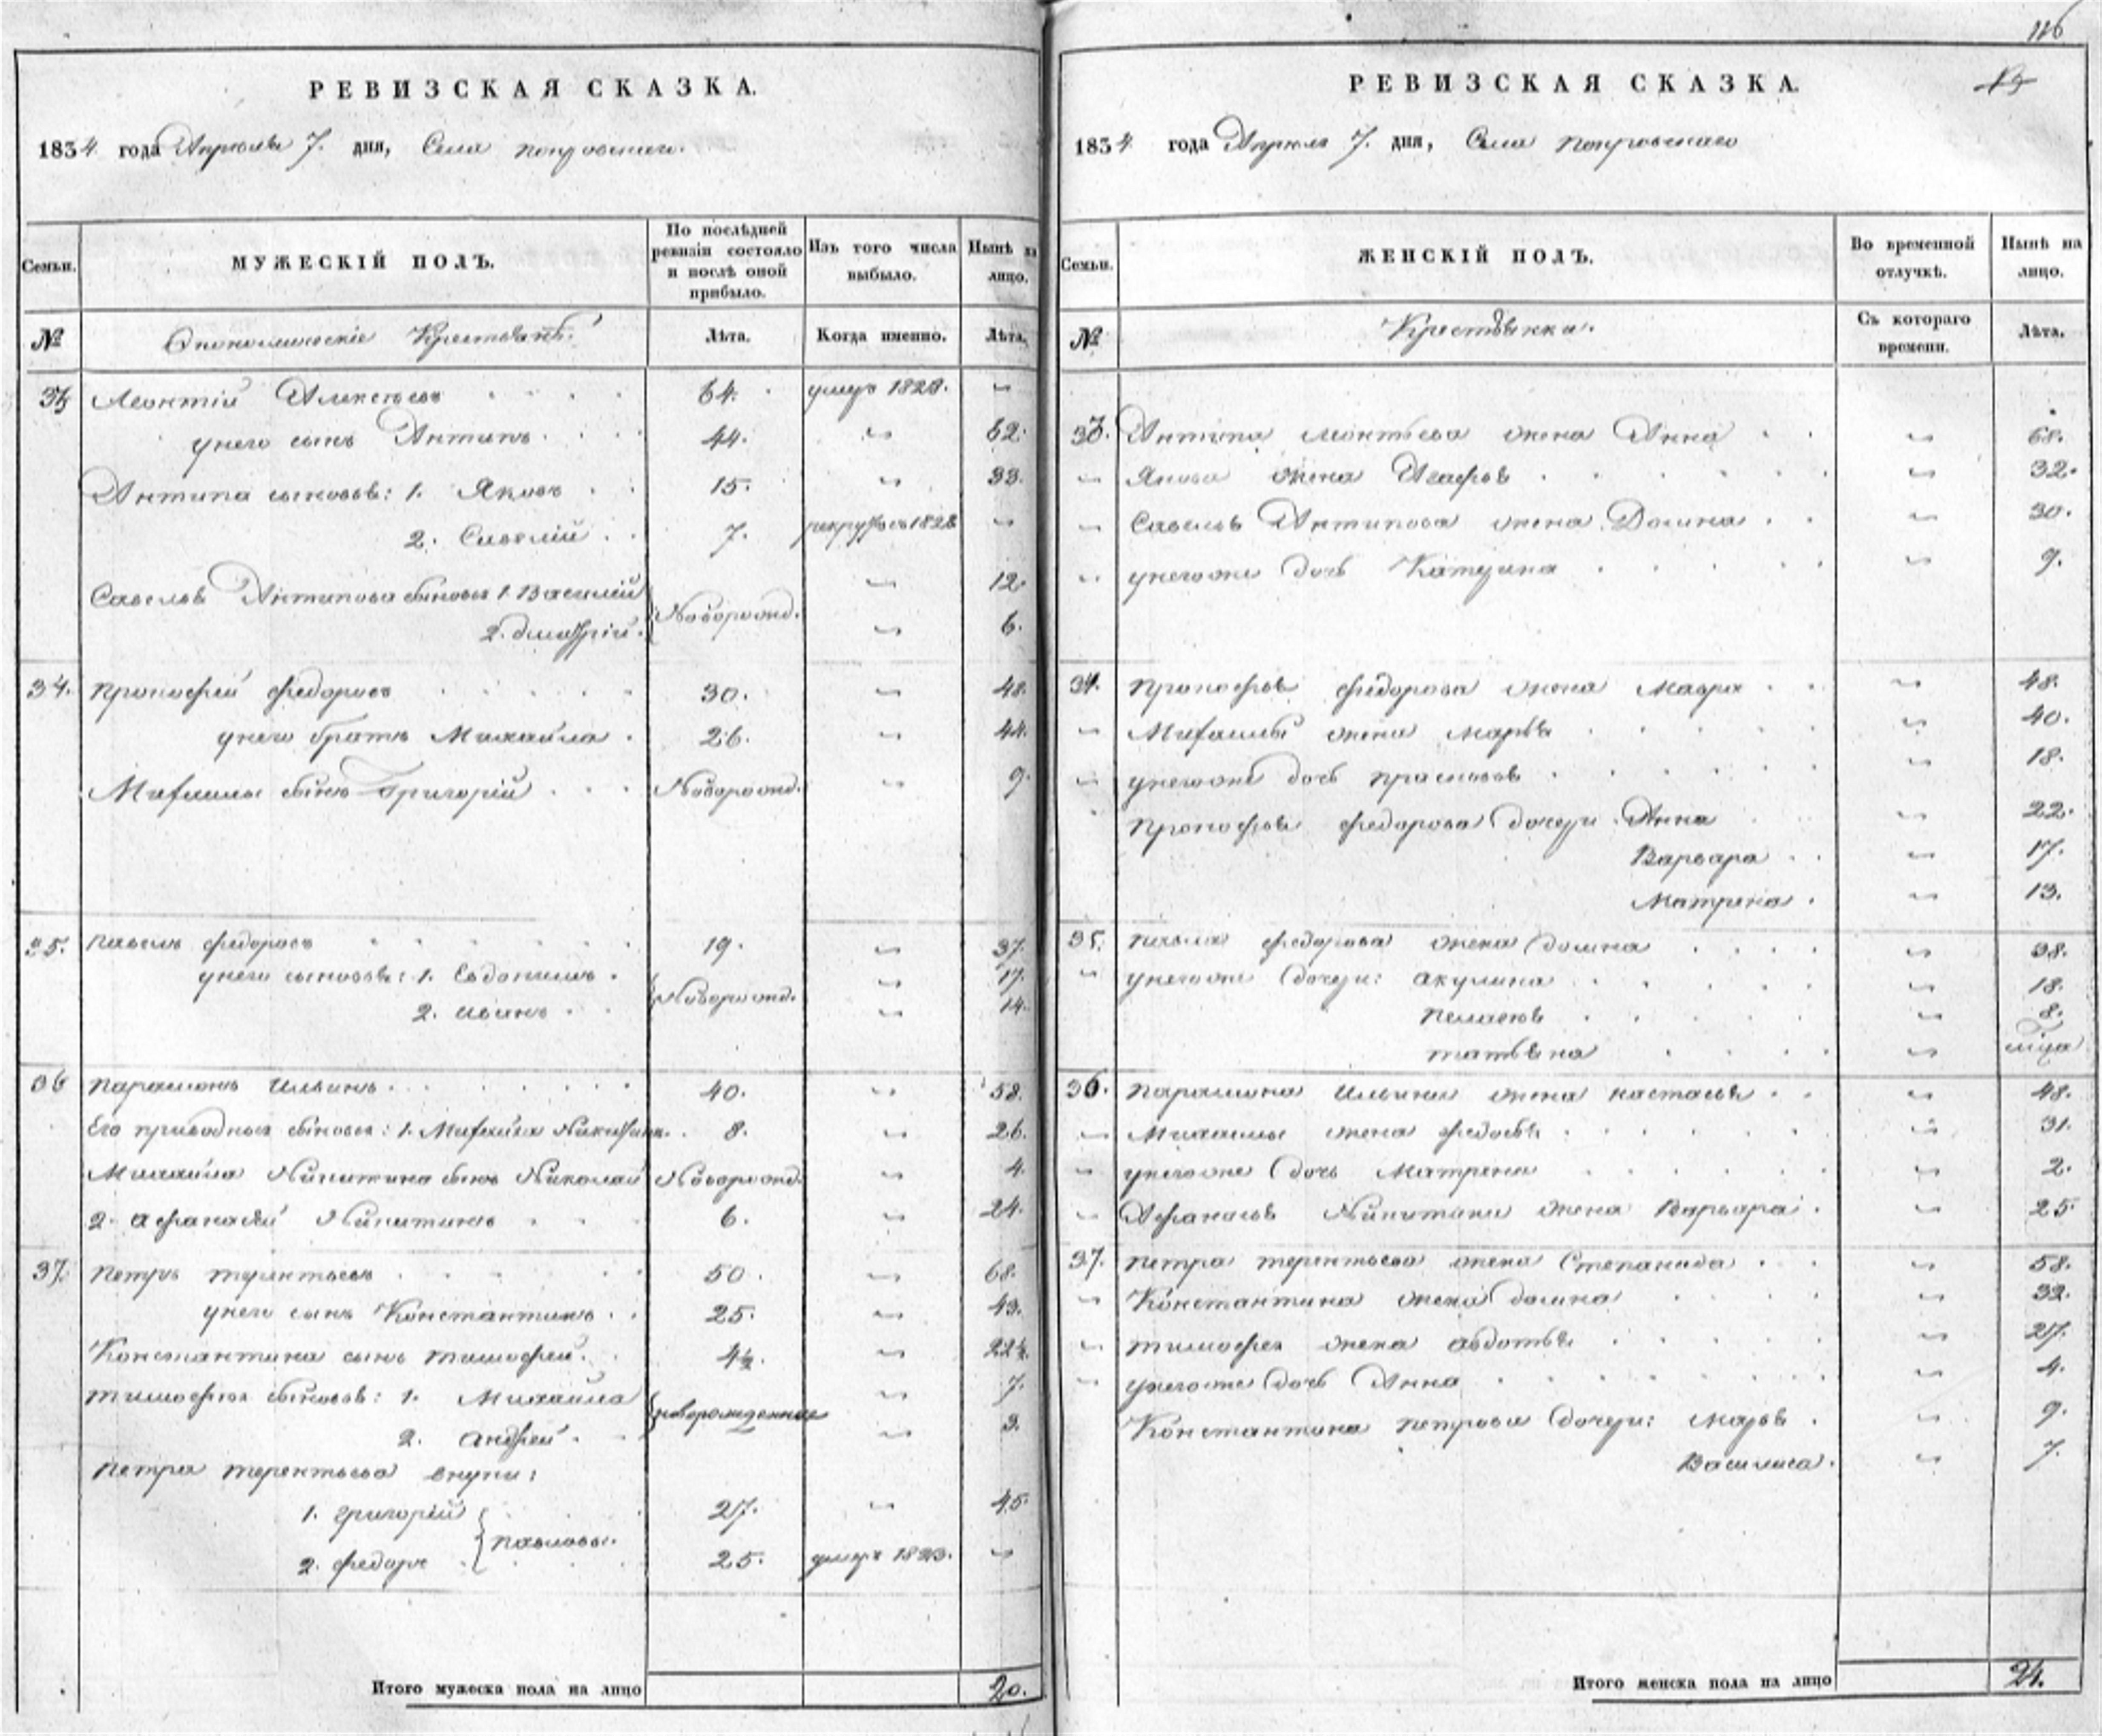 116
РЕВИЗСКАЯ СКАЗКА.
1834 года Апреля 7. дня, Села Покровскаго.
Семьи.
МУЖЕСКІЙ ПОЛЪ.
По послѣдней ревизіи состояло и послѣ оной прибыло.
Изъ того числа выбыло.
Нынѣ на лицо.
№
Экономическіе Крестьянѣ.
Лѣта.
Когда именно.
Лѣта.
33 Леонтій Алексѣевъ 64. умеръ 1828. "
унего сынъ Антипъ 44. " 62.
Антипа сыновья: 1. Яковъ 15. " 33.
2. Савелій 7. рекрутъ съ 1828 "
Савелья Антипова сыновья 1. Василій " 12.
Новорожд.
2. дмитрій. " 6.
34. Прокофей федоровъ 30. " 48.
унего братъ Михайла 26. " 44.
Михайлы сынъ Григорій Новорожд. " 9.
35. Павелъ федоровъ 19. " 37.
унего сыновья: 1. Евдокимъ " 17.
Новорожд.
2. Иванъ " 14.
36 Парамонъ Ильинъ 40. " 58.
Его приводныя сыновья: 1. Михайла Никитинъ. 8. " 26.
Михайла Никитина сынъ Николай Новорожд. " 4.
2. афанасей Никитинъ 6. " 24.
37. Петръ терентьевъ 50. " 68.
унего сынъ Константинъ 25. " 43.
Константина сынъ тимофей. 4½. " 22½.
тимофея сыновья: 1. Михайла " 7.
новорожденные
2. андрей. " 3.
Петра терентьева внуки:
1. григорей 27. " 45.
Павловы.
2. федоръ 25. умеръ 1823. "
Итого мужеска пола на лицо 20.
РЕВИЗСКАЯ СКАЗКА.
1834 года Апреля 7. дня, Села Покровскаго
Семьи.
ЖЕНСКІЙ ПОЛЪ.
Во временной отлучкѣ.
Нынѣ на лицо.
№
Крестьянки.
Съ котораго времени.
Лѣта.
33. Антипа леонтьева жена Анна " 68.
" Якова жена Агафья " 32.
" Савелья Антипова жена Домна " 30.
" унегоже дочь Катерина " 9.
34. Прокофья федорова жена Мавра " 48.
" Михайлы жена марья " 40.
" унегоже дочь прасковья " 18.
Прокофья федорова дочери Анна " 22.
Варвара " 17.
Матрена " 13.
35. Павла федорова жена домна " 38.
" унегоже дочери: акулина " 18.
Пелагея " 8.
татьяна "
36. Парамона Ильина жена настасья " 48.
" Михайлы жена федосья " 31.
" унегоже дочь Матрена " 2.
" Афанасья Никитина жена Варвара " 25.
37. Петра терентьева жена Степанида " 58.
" Константина жена домна " 32.
" тимофея жена авдотья " 27.
" унегоже дочь Анна " 4.
Константина петрова дочери: марья " 9.
Василиса. " 7.
Итого женска пола на лицо 24.